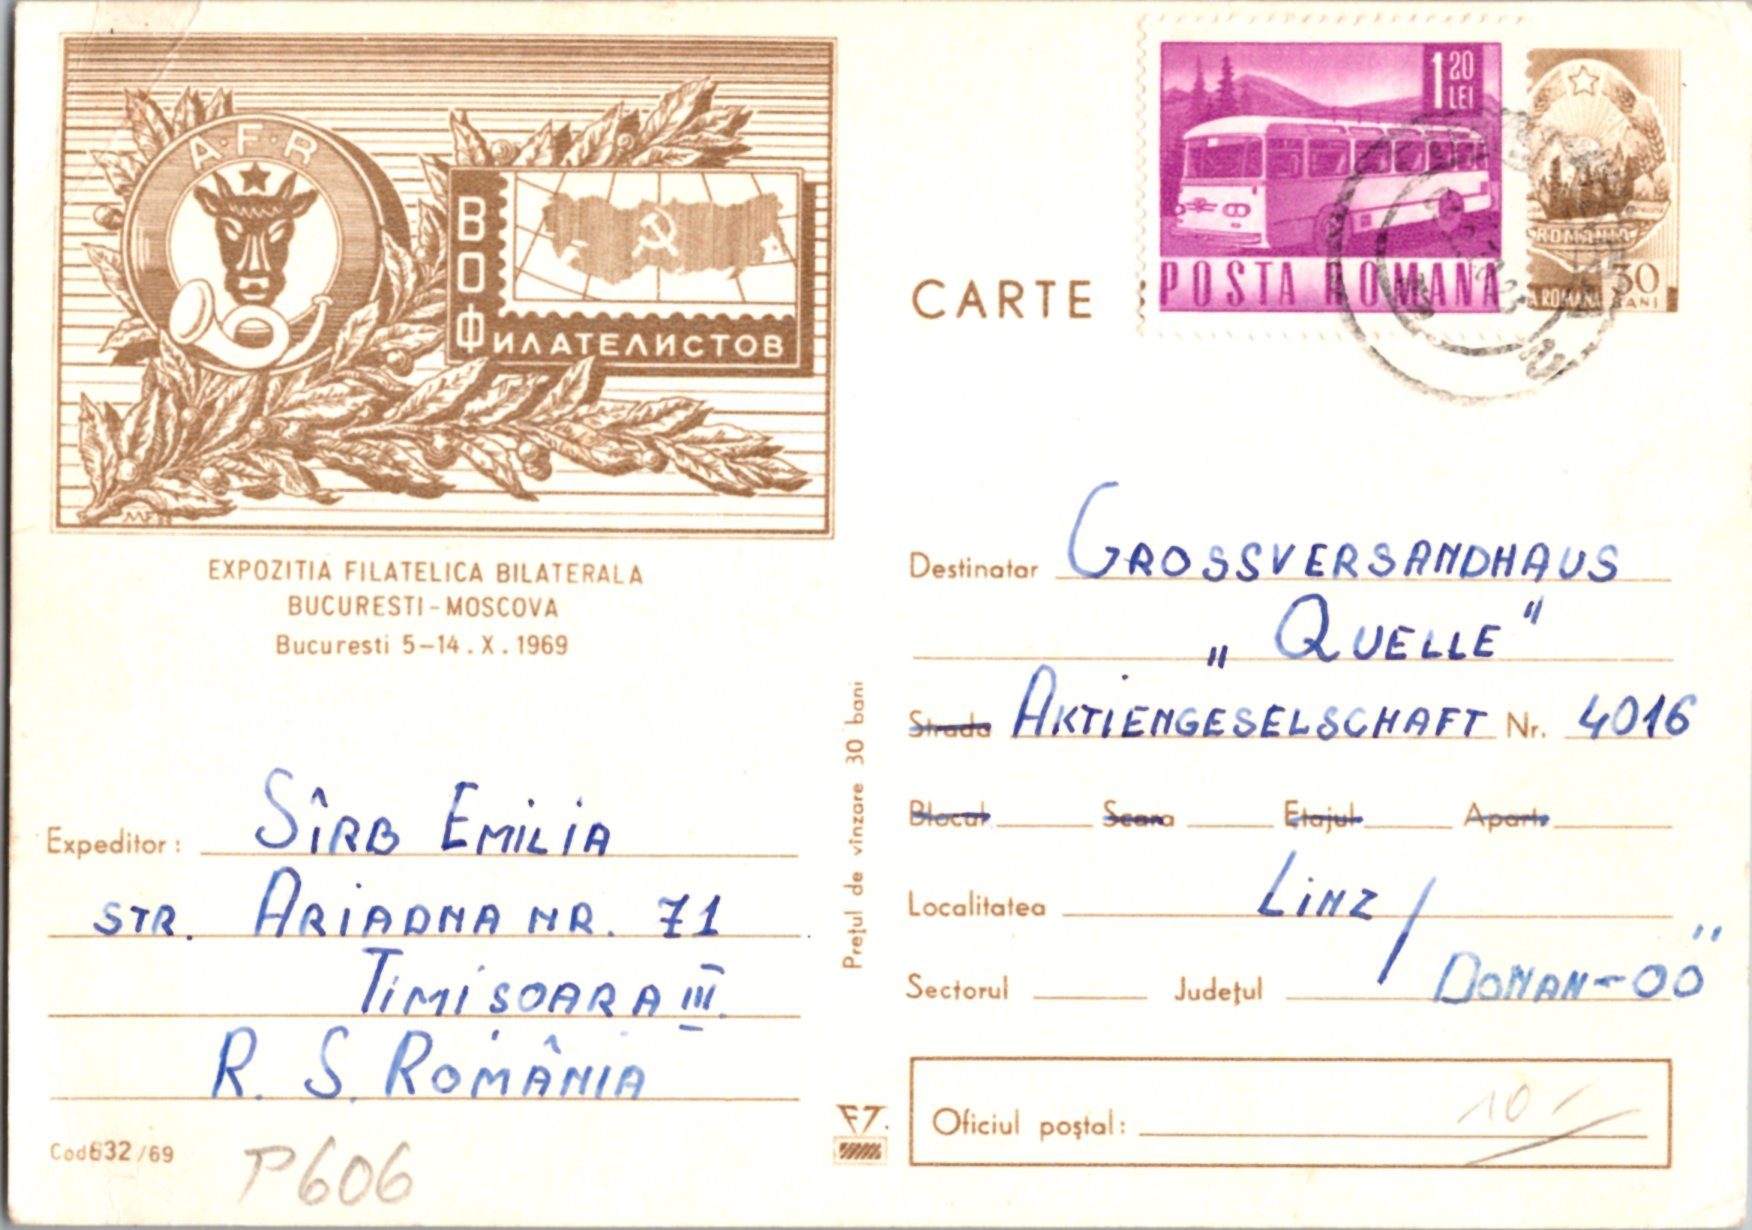 A.F.R
ВОФ
ИЛАТЕЛИСТОВ
MF
EXPOZITIA FILATELICA BILATERALA
BUCURESTI-MOSCOVA
Bucuresti 5-14.X.1969
Expeditor: SÎRB EMILIA
STR. ARIADNA NR. 71
TIMIȘOARA III.
R. S. ROMÂNIA
Cod 832/69
P606
Prețul de vînzare 30 bani
CARTE
1 20
LEI
POSTA ROMANA
ROMANIA
30
BANI
A ROMANA
Destinatar GROSSVERSANDHAUS
„QUELLE"
Strada AKTIENGESELSCHAFT Nr. 4016
Blocul Scara Etajul Apart.
Localitatea LINZ/
Sectorul Județul DONAN-OÖ
Oficiul poștal: 10-